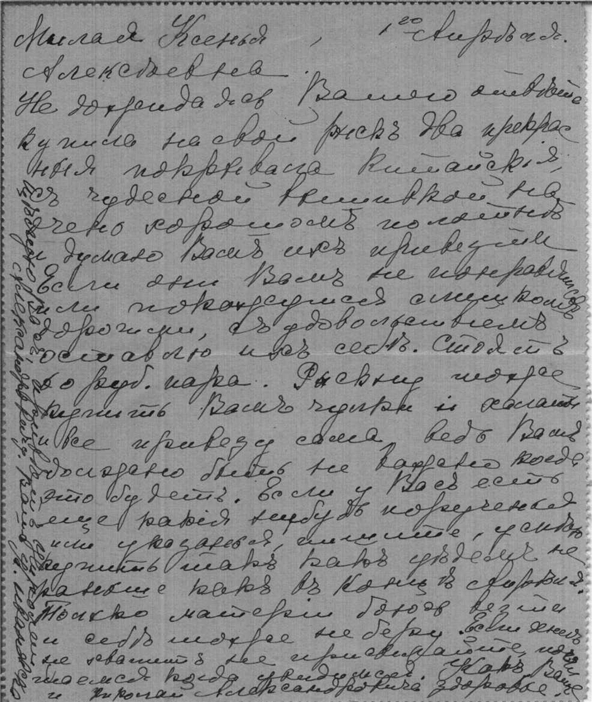 Милая Ксенья , 1го Апрѣля.
Алексѣевна
Не дождалась Вашего отвѣта
купила на свой рискъ два прекрас
ныя покрывала китайскія,
съ чудесной вышивкой на
очено хорошомъ полотнѣ
и думаю Вамъ ихъ привезти
Если они Вамъ не понравятся
или покажутся слишкомъ
дорогими, съ удовольствіемъ
оставлю ихъ себѣ. Стоятъ
руб. пара. Рискну тоже
купить Вамъ чулки и халатъ
и все привезу сама, ведь Вамъ
должно быть не важно когда
это будетъ. Если у Васъ есть
еще какія нибудь порученья
или указанья, пишите, успѣю
купить такъ какъ уѣдемъ не
раньше какъ въ концѣ апрѣля.
Только матеріи боюсь везти
и себѣ тоже не беру. Если денегъ
не хватитъ не присылайте,
таемся когда увидимся. Какъ Ваше
и Николай Александровича здоровье.
Цѣлую Васъ, а
Александровичу. Ваша